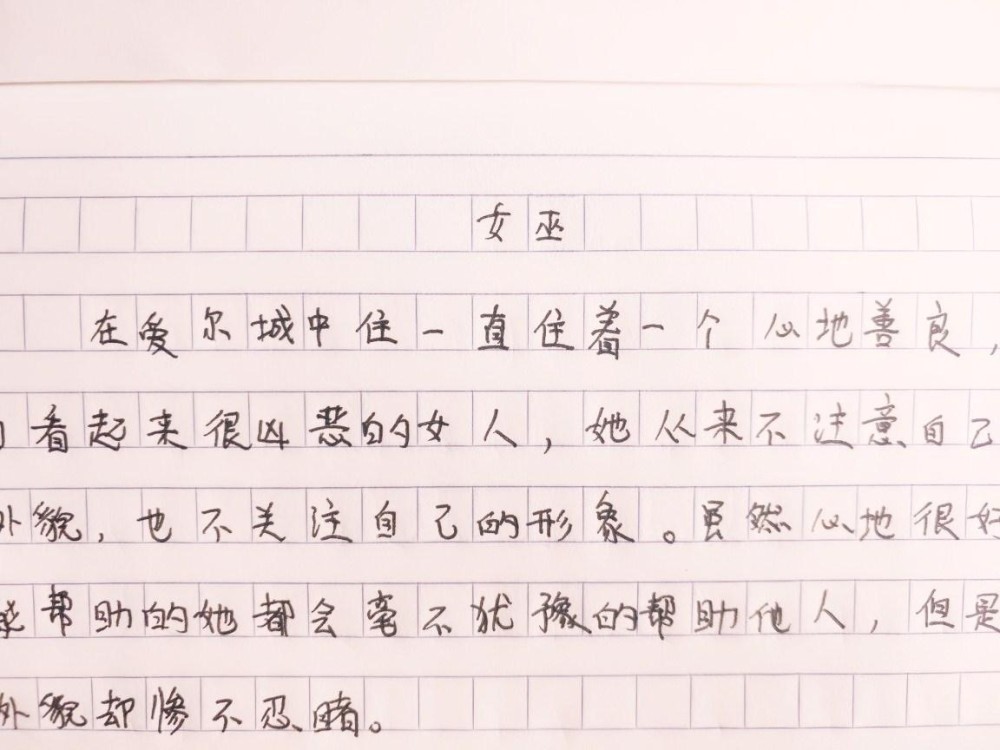 女巫
在爱尔城中住一直住着一个心地善良，
看起来很凶恶的女人，她从来不注意自己
外貌，也不关注自己的形象。虽然心地很好
帮助的她都会毫不犹豫的帮助他人，但是
外貌却惨不忍睹。